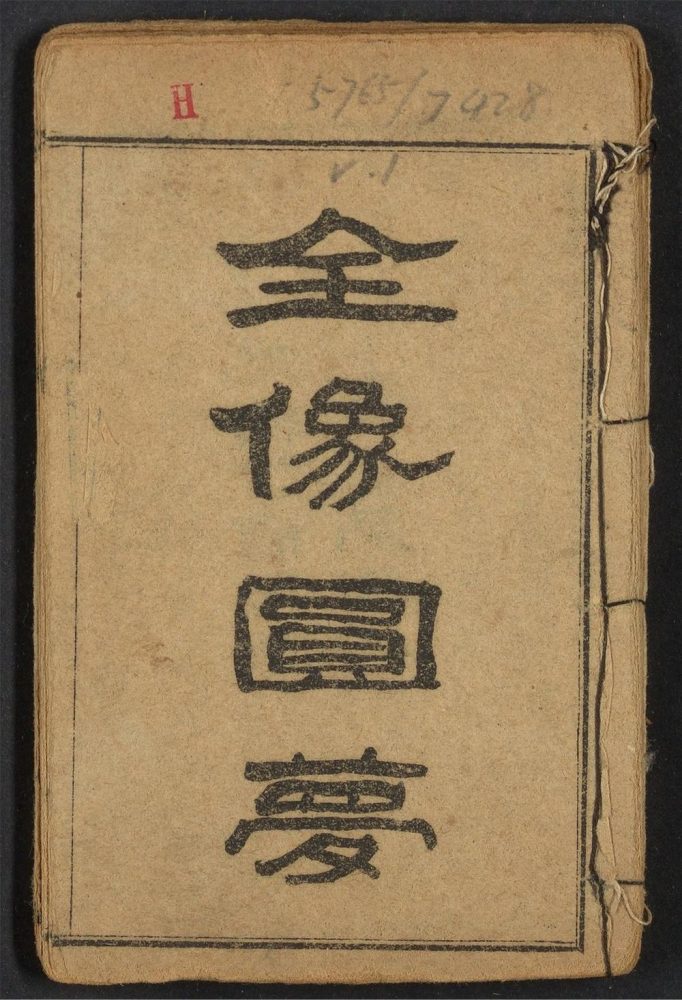 H
5765/7428
v.1
全像圓夢